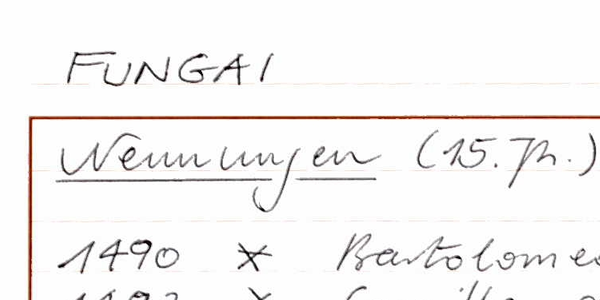 FUNGAI
Nennungen (15. Jh.)
1490 * Bartolomeo